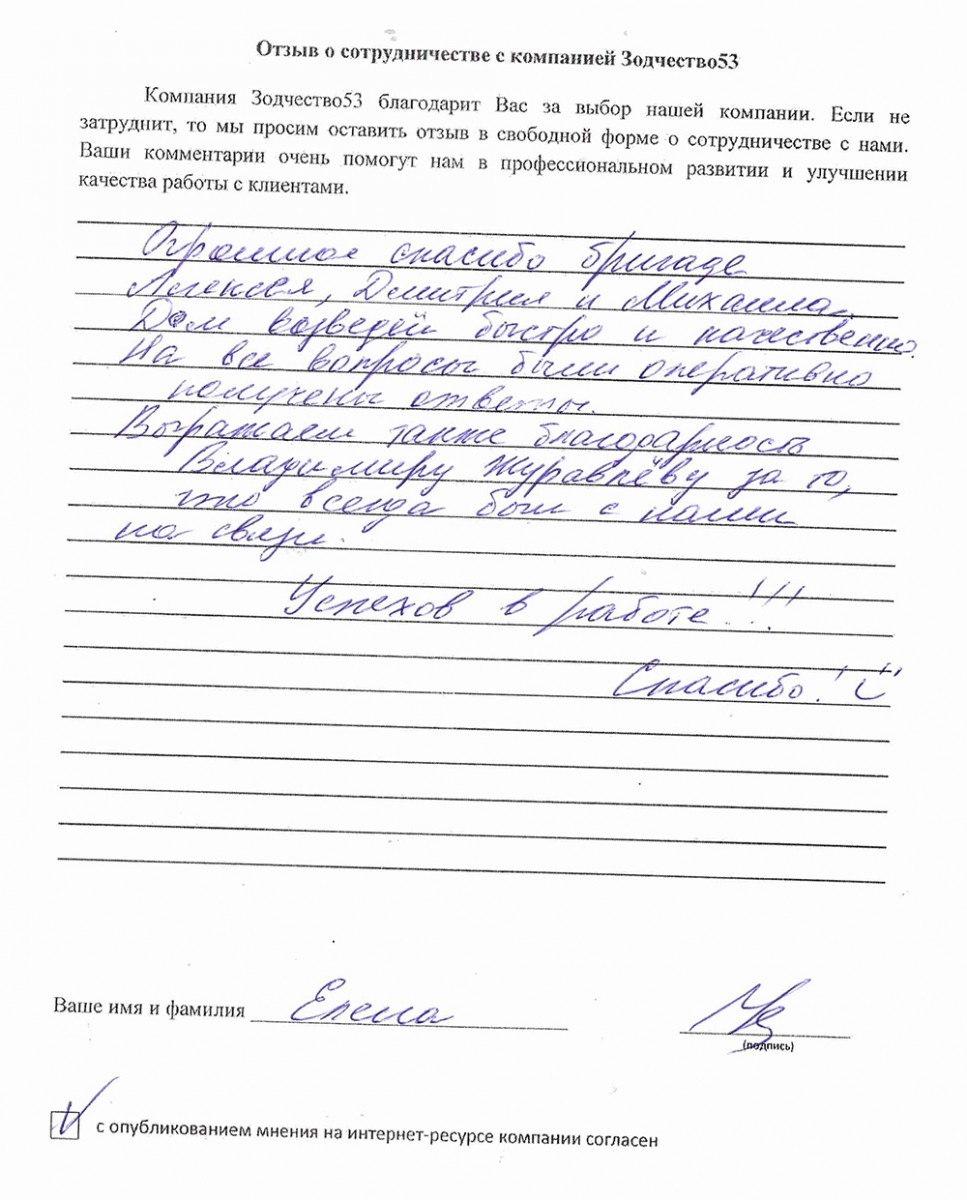 Отзыв о сотрудничестве с компанией Зодчество53
Компания Зодчество53 благодарит Вас за выбор нашей компании. Если не
затруднит, то мы просим оставить отзыв в свободной форме о сотрудничестве с нами.
Ваши комментарии очень помогут нам в профессиональном развитии и улучшении
качества работы с клиентами.
Огромное спасибо бригаде
Алексея, Дмитрия и Михаила.
Дом возведён быстро и качественно.
На все вопросы были оперативно
получены ответы.
Выражаем также благодарность
Владимиру Журавлёву за то,
что всегда был с нами
на связи.
Успехов в работе!!!
Спасибо!
Ваше имя и фамилия Елена
(подпись)
с опубликованием мнения на интернет-ресурсе компании согласен